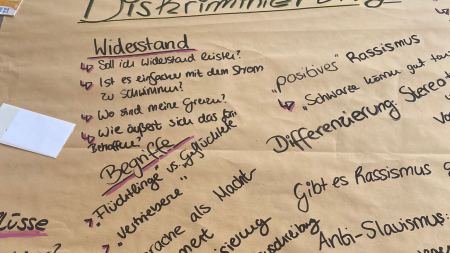 Diskriminierung
Widerstand
Soll ich Widerstand leisten?
Ist es einfacher mit dem Strom
zu schwimmen?
Wo sind meine Grenzen?
Wie äußert sich das für
Betroffene?
Begriffe
"Flüchtlinge" vs. Geflüchtete
"Vertriebene"
Sprache als Macht
"positives" Rassismus
"Schwarze können gut
Differenzierung: Stereo
Gibt es Rassismus
Anti-Slavismus: